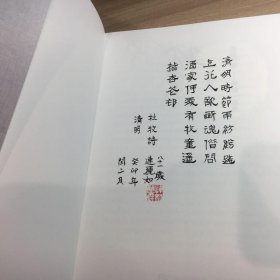 清明時節雨紛紛路
上行人欲斷魂借問
酒家何處有牧童遙
指杏花村
杜牧詩
清明
八十一歲
連麗如
癸卯年
閏二月